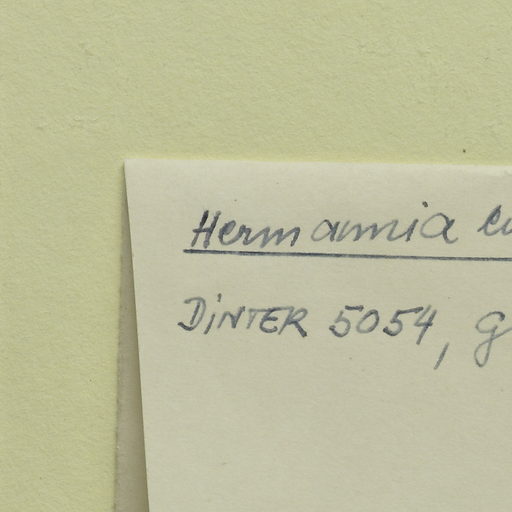 Hermannia
DiNTER 5054, g